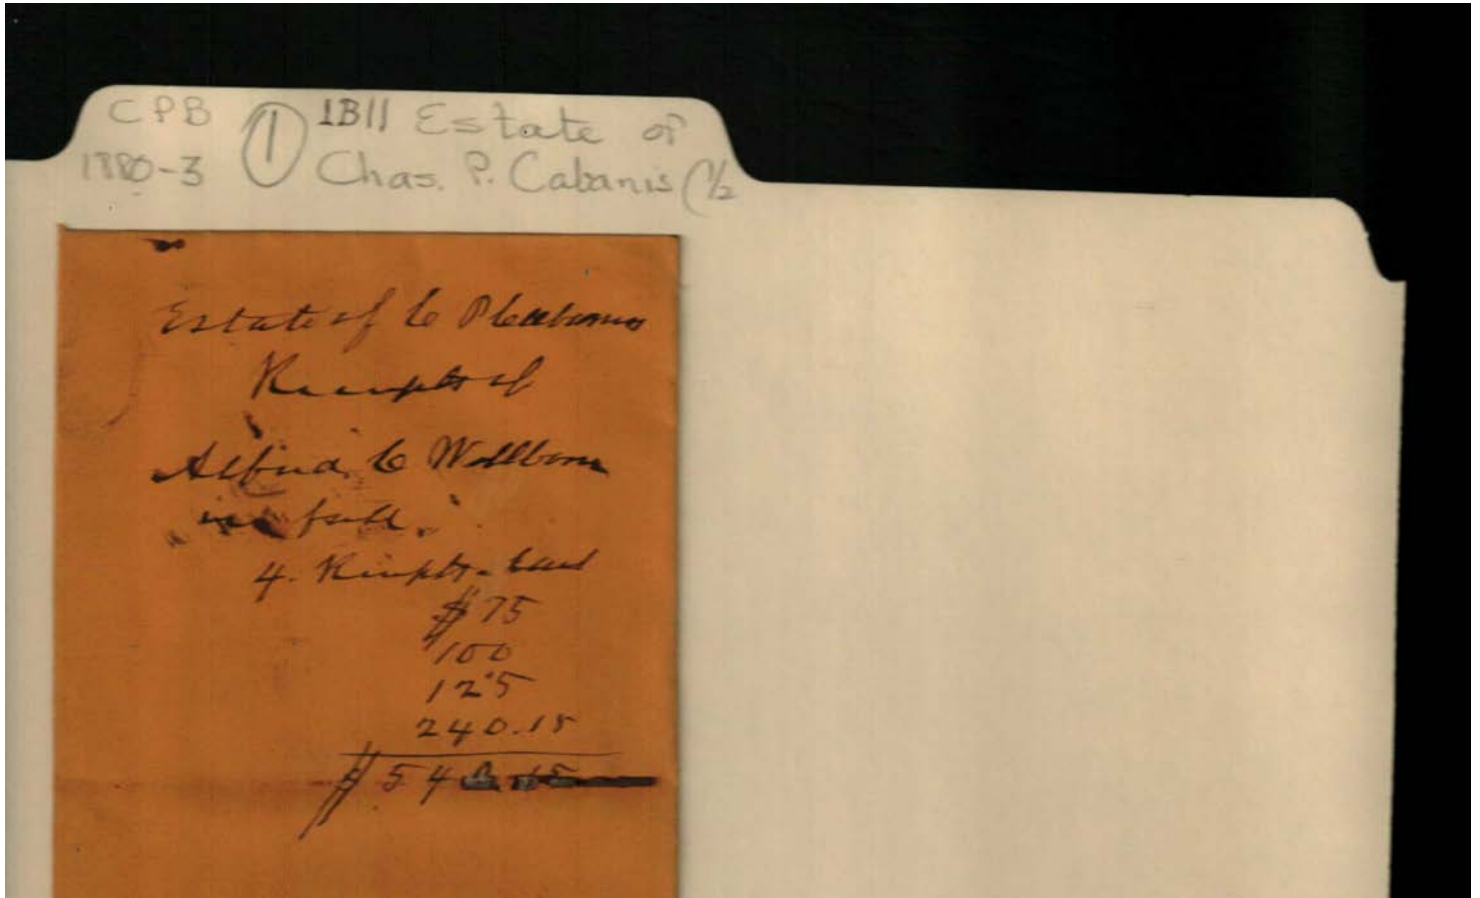 CPB
1880-3
1
1B11 Estate of
Chas. P. Cabanis (1/2
Estate of C P Cabaniss
Receipts of
Alfred C Wellborn
in full.
4. Receipts - each
$75
100
125
240.15
$540.15